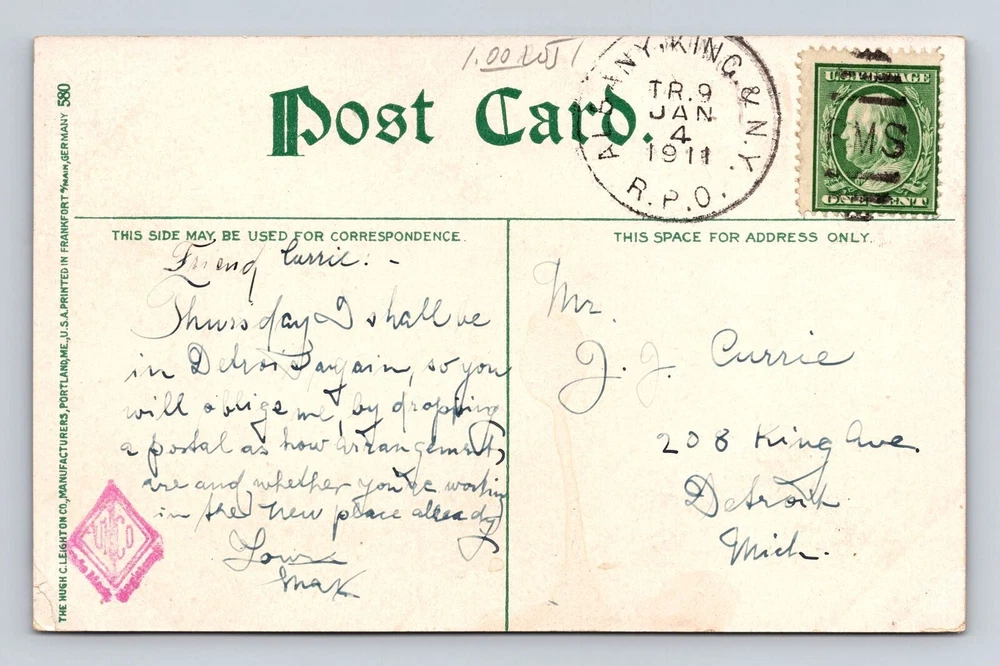 Post Card.
ALBANY, KING. & N.Y.
TR. 9
JAN
4
1911
R.P.O.
U.S. POSTAGE
MS
ONE CENT
THE HUGH C. LEIGHTON CO., MANUFACTURERS, PORTLAND, ME., U.S.A. PRINTED IN FRANKFORT a/MAIN, GERMANY 580
THIS SIDE MAY BE USED FOR CORRESPONDENCE.
Friend Currie: -
Thursday I shall be
in Detroit again, so you
will oblige me, by dropping
a postal as how arrangements
are and whether you're workin
in the new place already
Yours
Max
THIS SPACE FOR ADDRESS ONLY.
Mr.
J. J. Currie
208 King Ave.
Detroit
Mich.